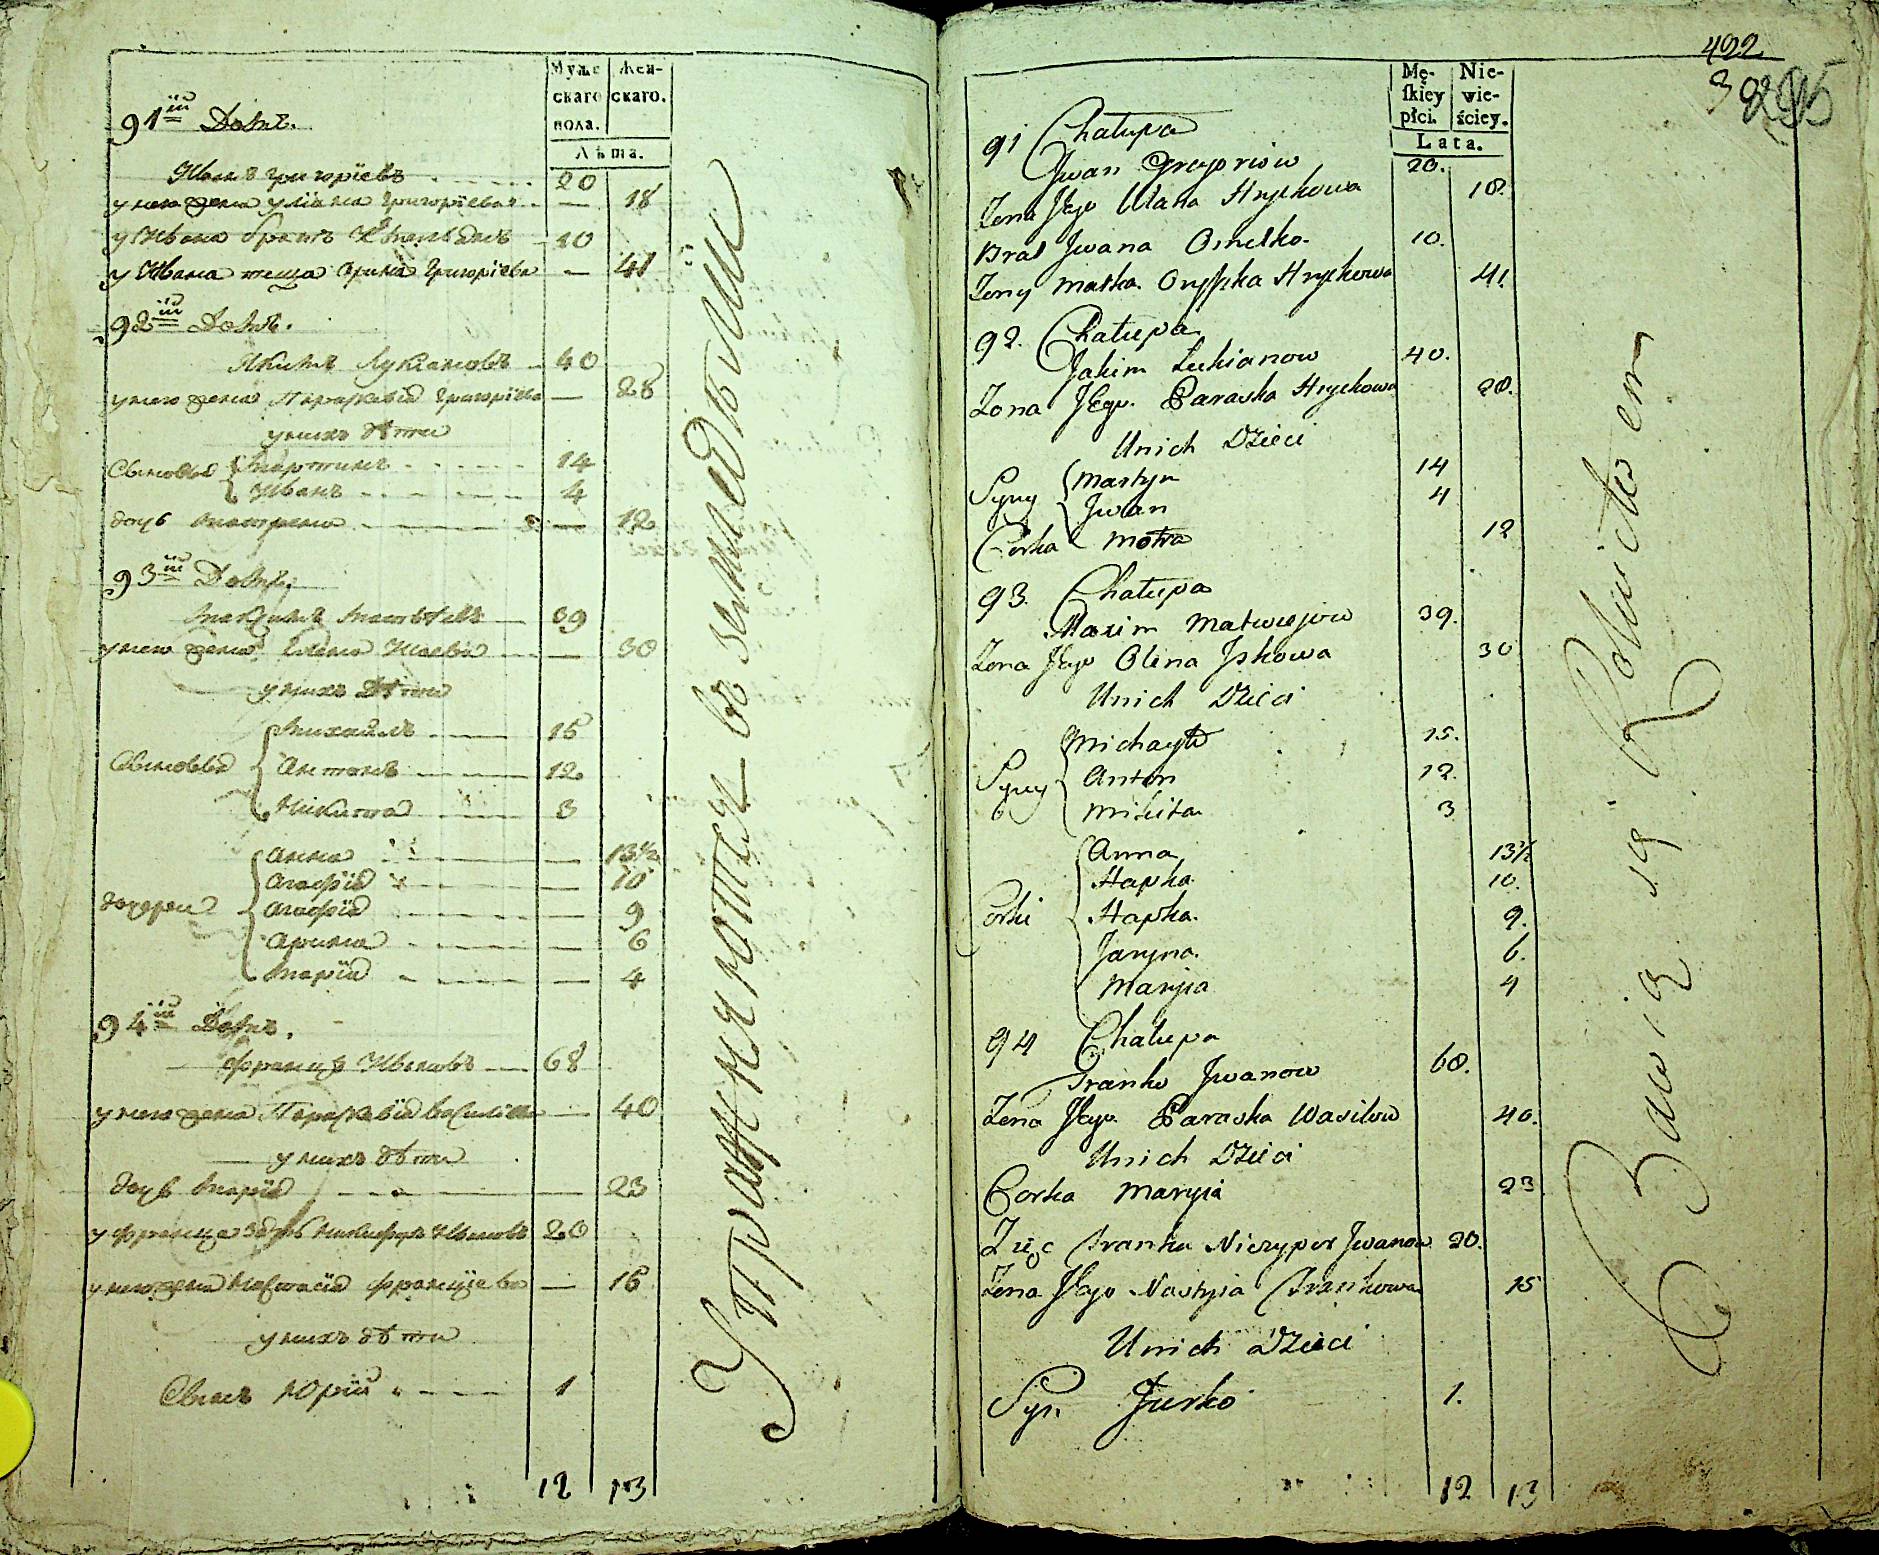 Муже
скаго
пола.
Жен-
скаго.
Лѣта.
91й Домъ.
Иванъ Григорїевъ 20
у него жена Улїана Григорїева 18
у Ивана братъ 10
у Ивана теща Арина Григорїева 41
92й Домъ.
Якимъ Лукїановъ 40
у него жена Параскевїа Григорїева 28
у нихъ дѣти
Сыновья Мартинъ 14
Иванъ 4
дочь Матрена 12
93й Домъ.
Максимъ Матвѣевъ 39
у него жена Елена 30
у нихъ дѣти
Михайлъ 15
Сыновья Антонъ 12
Никита 3
Анна 13½
Агафїа 10
дочери Агафїа 9
Арина 6
Марїа 4
94й Домъ.
Францъ Ивановъ 68
у него жена Параскевїа Василїева 40
у нихъ дѣти
дочь Марїа 23
у Франца зять Никифоръ Ивановъ 20
у него жена Настасїа Францева 15
у нихъ дѣти
Сынъ Юрїй 1
12 13
Упражняются въ земледѣлїи
422
Mę-
skiey
płci.
Nie-
wie-
ściey.
Lata.
91 Chałupa
Jwan Gregoriow 20.
Zona Jego Ulana Hryckowa 18.
Brat Jwana Omelko. 10.
Zony matka Oryszka Hryckowa 41.
92. Chałupa
Jakim Lukianow 40.
Zona Jego Paraska Hryckowa 28.
Unich Dzieci
Syny Martyn 14
Jwan 4
Corka Motra 12
93. Chałupa
Maxim Matwiejow 39.
Zona Jego Olena Jskowa 30
Unich Dzieci
Michayło 15.
Syny Anton 12.
Mikita 3
Anna 13½
Hapka 10.
Corki Hapka. 9.
Jaryna. 6.
Maryia 4
94 Chałupa
Franko Jwanow 68.
Zona Jego Paraska Wasilow 40.
Unich Dzieci
Corka Maryia 23
Zięc Franka Niczypor Jwanow 20.
Zona Jego Nastyia Frankowa 15
Unich Dzieci
Syn Jurko 1.
12 13
Bawią się Rolnictwem